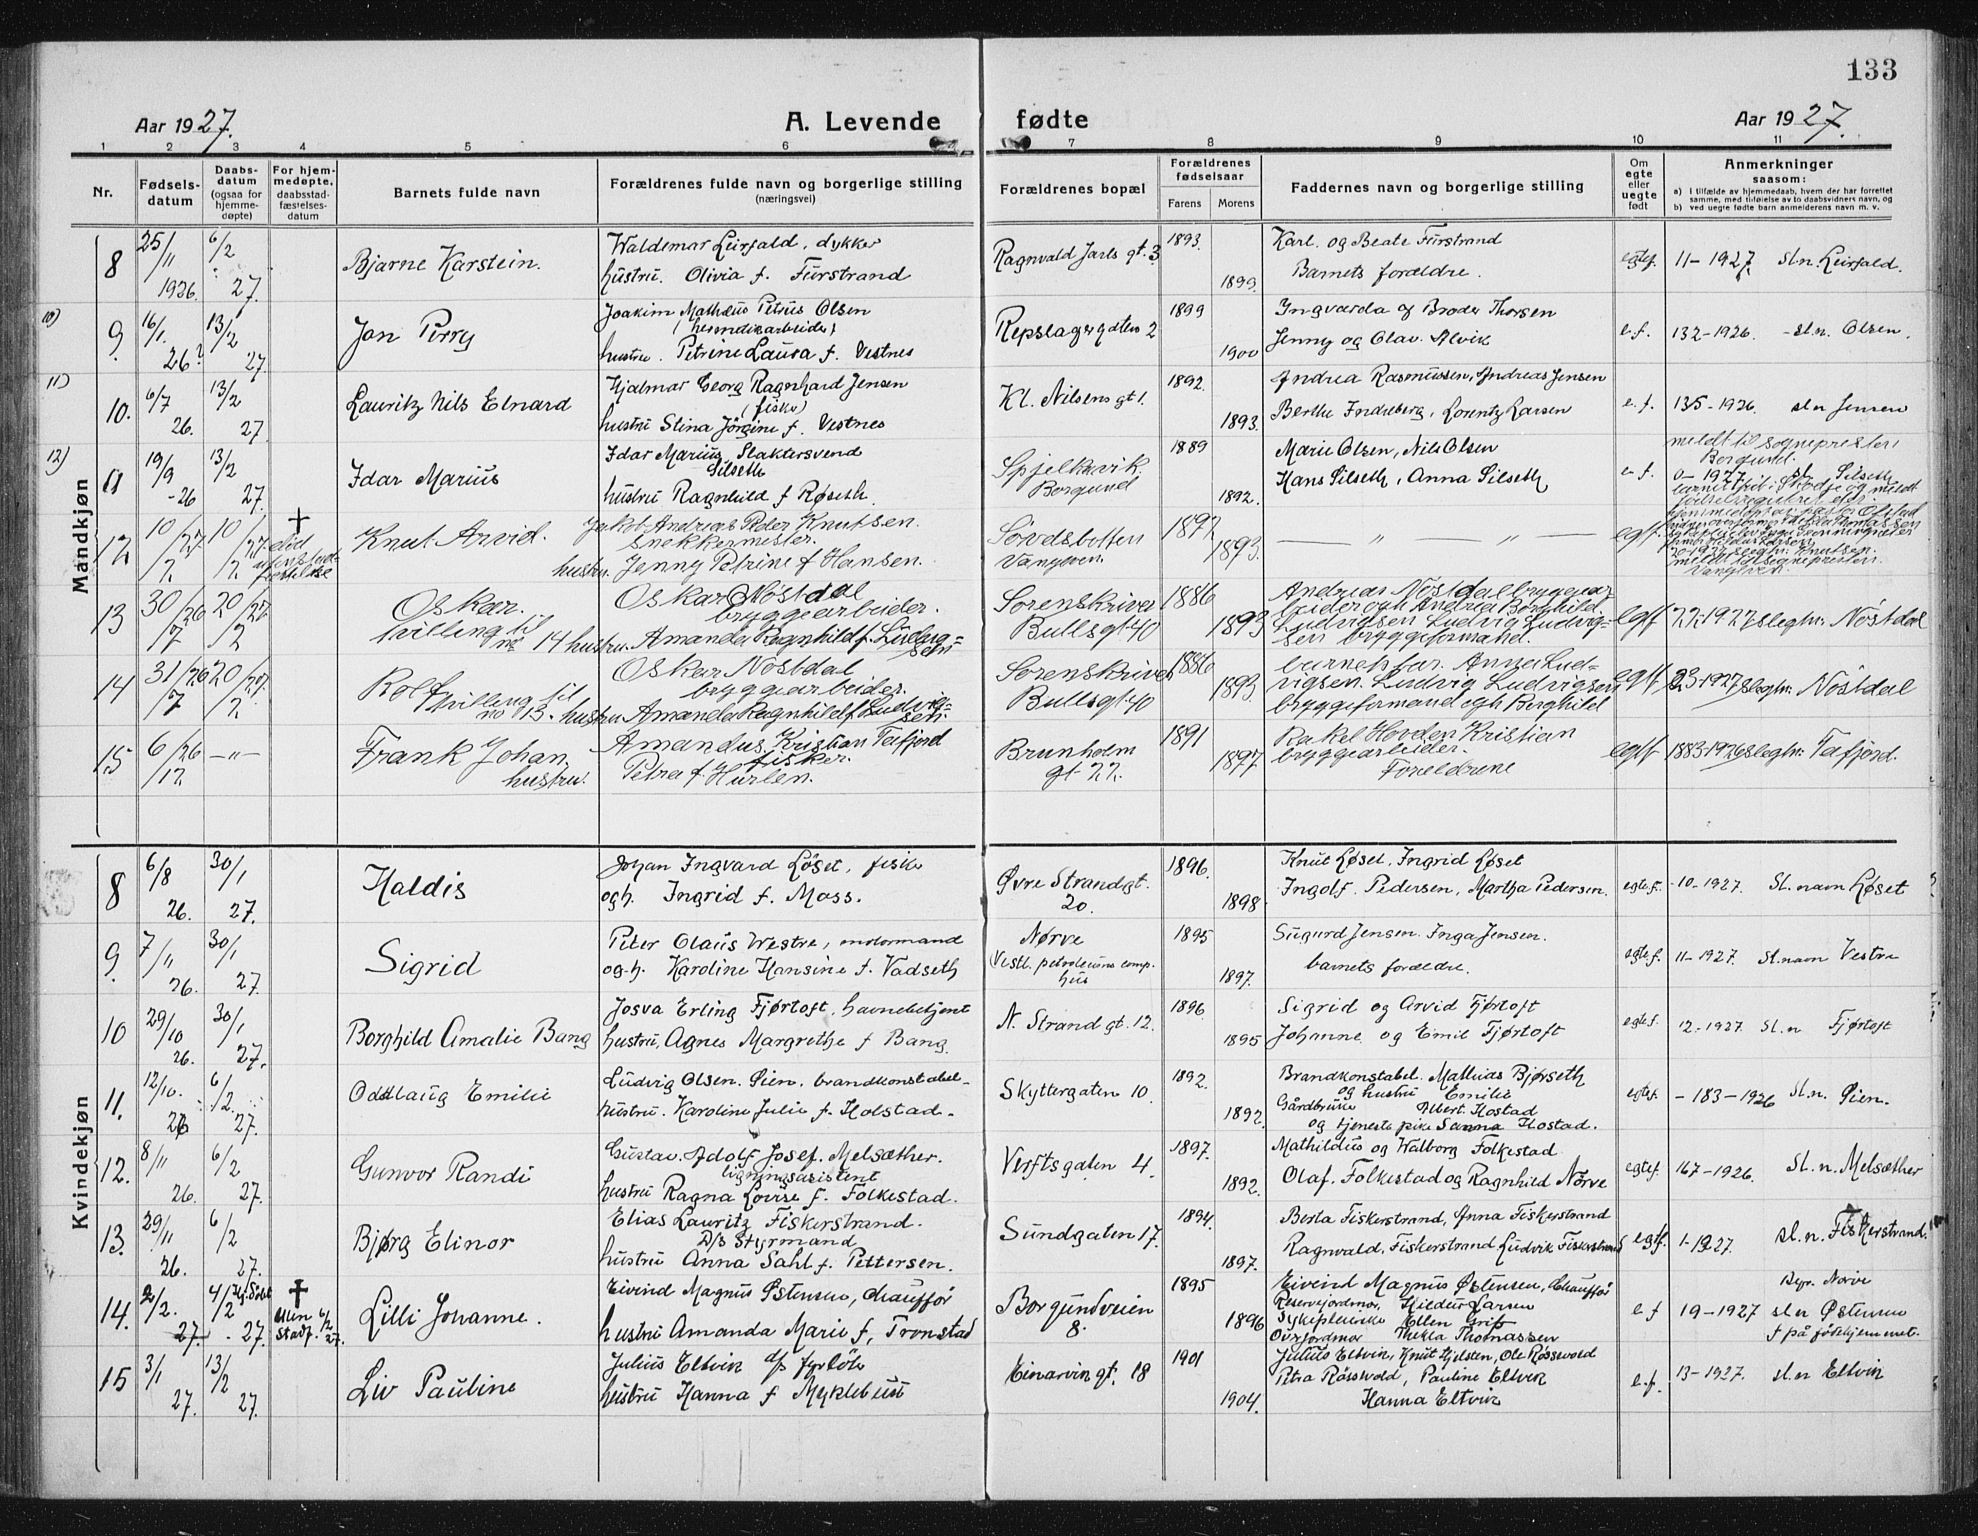 133
Aar 1927.
A. Levende fødte
Aar 1927.
1 2 3 4 5 6 7 8 9 10 11
Nr.
Fødsels-
datum
Daabs-
datum
(ogsaa for
hjemme-
døpte)
For hjem-
medøpte,
daabsstad-
fæstelses-
datum
Barnets fulde navn
Forældrenes fulde navn og borgerlige stilling
(næringsvei)
Forældrenes bopæl
Forældrenes
fødselsaar
Farens Morens
Faddernes navn og borgerlige stilling
Om
egte
eller
uegte
født
Anmerkninger
saasom:
a) I tilfælde av hjemmedaab, hvem der har forrettet
samme, med tilføielse av to daabsvidners navn, og
b) ved uegte fødte barn anmelderens navn m. v.
Mandkjøn
8 25/11 1926. 6/2 27. Bjarne Karstein.
Waldemar Leirfald, dykker
hustru. Olivia f. Furstrand
Ragnvald Jarls gt. 3 1893. 1899.
Karl. og Beate Furstrand
Barnets forældre.
egtef. 11-1927. sl.n. Leirfald.
10) 9. 16/1. 26? 13/2 27. Jan Perry
Joakim Mathæus Petrus Olsen
hustru. Petrine Laura f. Vestnes
Repslagergaten 2 1899 1900
Ingvarda og Broder Thorsen
Jenny og Olav. Alvik
e.f. 132-1926. sl.n. Olsen.
11) 10. 6/7 26. 13/2 27. Lauritz Nils Elnard
Hjalmar Georg Ragnhard Jensen
(fisker)
hustru Stina Jørgine f. Vestnes
Kl. Nilsens gt 1. 1892. 1893.
Andrea Rasmussen, Andreas Jensen
Berthe Indreberg, Lorentz Larsen
e.f. 135-1926. sl.n Jensen
12) 11 19/9 -26 13/2 27. Idar Marius
Idar Marius Slaktersvend
Silseth
hustru Ragnhild f Røseth.
Spjelkavik
Borgund 1889 1892.
Marie Olsen, Nils Olsen
Hans Silseth, Anna Silseth
e.f. meldt til sognepresten i
Borgund.
0-1927. sl. Silseth
12 10/2 27. 10/2 27. + død
Knut Arvid.
Jakob Andreas Peder Knutsen.
snekkermester.
hustru. Jenny Petrine f Hansen.
Søvdsbotten
Vanylven. 1892 1893.
— " — " —
egtf.
13 30/7 26 20/2 27. Oskar.
tvilling til
no 14
Oskar Nøstdal
byggearbeider.
hustru. Amanda Ragnhild f. Ludvig=
sen
Sorenskriver
Bullsgt 40 1886 1893
Andreas Nøstdal byggear
beider og h Andrea Borghild.
Ludvigsen Ludvig Ludvig=
sen bryggeformand.
egtf 22-1927 slegtn: Nøstdal
14 31/7 26 20/2 27. Rolf
tvilling til
no 13.
Oskar Nøstdal
bryggearbeider.
hustru Amanda Ragnhild f. Ludvig=
sen.
Sorenskriver
Bullsgt 40 1886 1893.
barnets far. Anna Lud=
vigsen. Ludvig Ludvigsen
bryggeformand og h Borghild
egtf 23-1927 slegtn: Nøstdal
15 6/12 26 —"— Frank Johan.
Amandus Kristian Tafjord
fisker.
hustru. Petra f. Hurlen.
Brunholm
gt 22. 1891 1897.
Rakel Hovden Kristian
bryggearbeider.
Foreldrene
egtf 1883-1926 slegtn: Tafjord.
Kvindekjøn
8 6/8 26. 30/1 27. Haldis
Johan Ingvard Løset, fisker
og h. Ingrid f. Moss.
Øvre Strandgt.
20. 1896. 1898.
Knut Løset, Ingrid Løset
Ingolf. Pedersen, Martha Pedersen.
egtef. -10-1927. Sl. navn Løset
9. 7/11 26. 30/1 27. Sigrid
Peter Olaus Vestre, motormand
og h. Karoline Hansine f. Vadseth
Nørve
(Vestl. petroleums comp.
hus 1895 1897.
Sigurd Jensen. Inga Jensen.
barnets forældre.
egtef. 11-1927. Sl. navn Vestre
10 29/10 26. 30/1 27. Borghild Amalie Bang
Josva Erling Fjørtoft, havnebetjent
hustru, Agnes Margrethe f Bang.
N. Strand gt. 12. 1896. 1895
Sigrid og Arvid Fjørtoft
Johanne og Emil Fjørtoft
egtef. 12-1927. Sl.n Fjørtoft
11. 12/10. 26 6/2. 27. Oddlaug Emilie
Ludvig Olsen. Øien. brandkonstabel-
hustru. Karoline Julie f. Holstad.
Skyttergaten 10. 1892. 1892.
Brandkonstabel. Mathias Bjørseth
og hustru Emilie
Gårdbruker Albert. Hostad
og tjeneste pike Sanna Hostad.
egtef. -183-1926 Sl.n. Øien.
12. 8/11 26. 6/2 27. Gunvor Randi
Gustav. Adolf Josef. Melsæther.
ligningsasistent
hustru Ragna Lovise f. Folkestad.
Verftsgaten 4. 1897. 1892.
Mathildus og Walborg Folkestad
Olaf. Folkestad og Ragnhild Nørve
egtef. 167-1926. Sl.n. Melsæther
13. 29/11 26. 6/2 27. Bjørg Elinor
Elias Lauritz Fiskerstrand.
D/S Styrmand
hustru Anna Sahl f. Pettersen.
Sundgaten 17. 1894. 1897.
Berta Fiskerstrand, Anna Fiskerstrand
Ragnvald. Fiskerstrand Ludvik Fiskerstrand
egtf. 1-1927. sl.n. Fiskerstrand.
14. 2/2. 27. 4/2 27. + Lilli Johanne.
Eivind Magnus Østensen, Chauffør
hustru Amanda Marie f. Tronstad
Borgundveien
8. 1895 1896
Eivind Magnus Østensen, Chauffør
Reservejordmor, Hildur Larsen
Sykepleierske Ellen Grip
Overjordmor Thekla Thomassen
e.f 19-1927 sl.n Østensen
f på fødehjemmet.
15 3/1 27. 13/2 27. Liv Pauline
Julius Eltvik d/s fyrbøter
hustru Hanna f Myklebust
Einarvik gt. 18 1901 1904.
Julius Eltvik, Knut Hjelsten, Ole Røssvold
Petra Røssvold, Pauline Eltvik
Hanna Eltvik
e.f. 13-1927. sl.n Eltvik